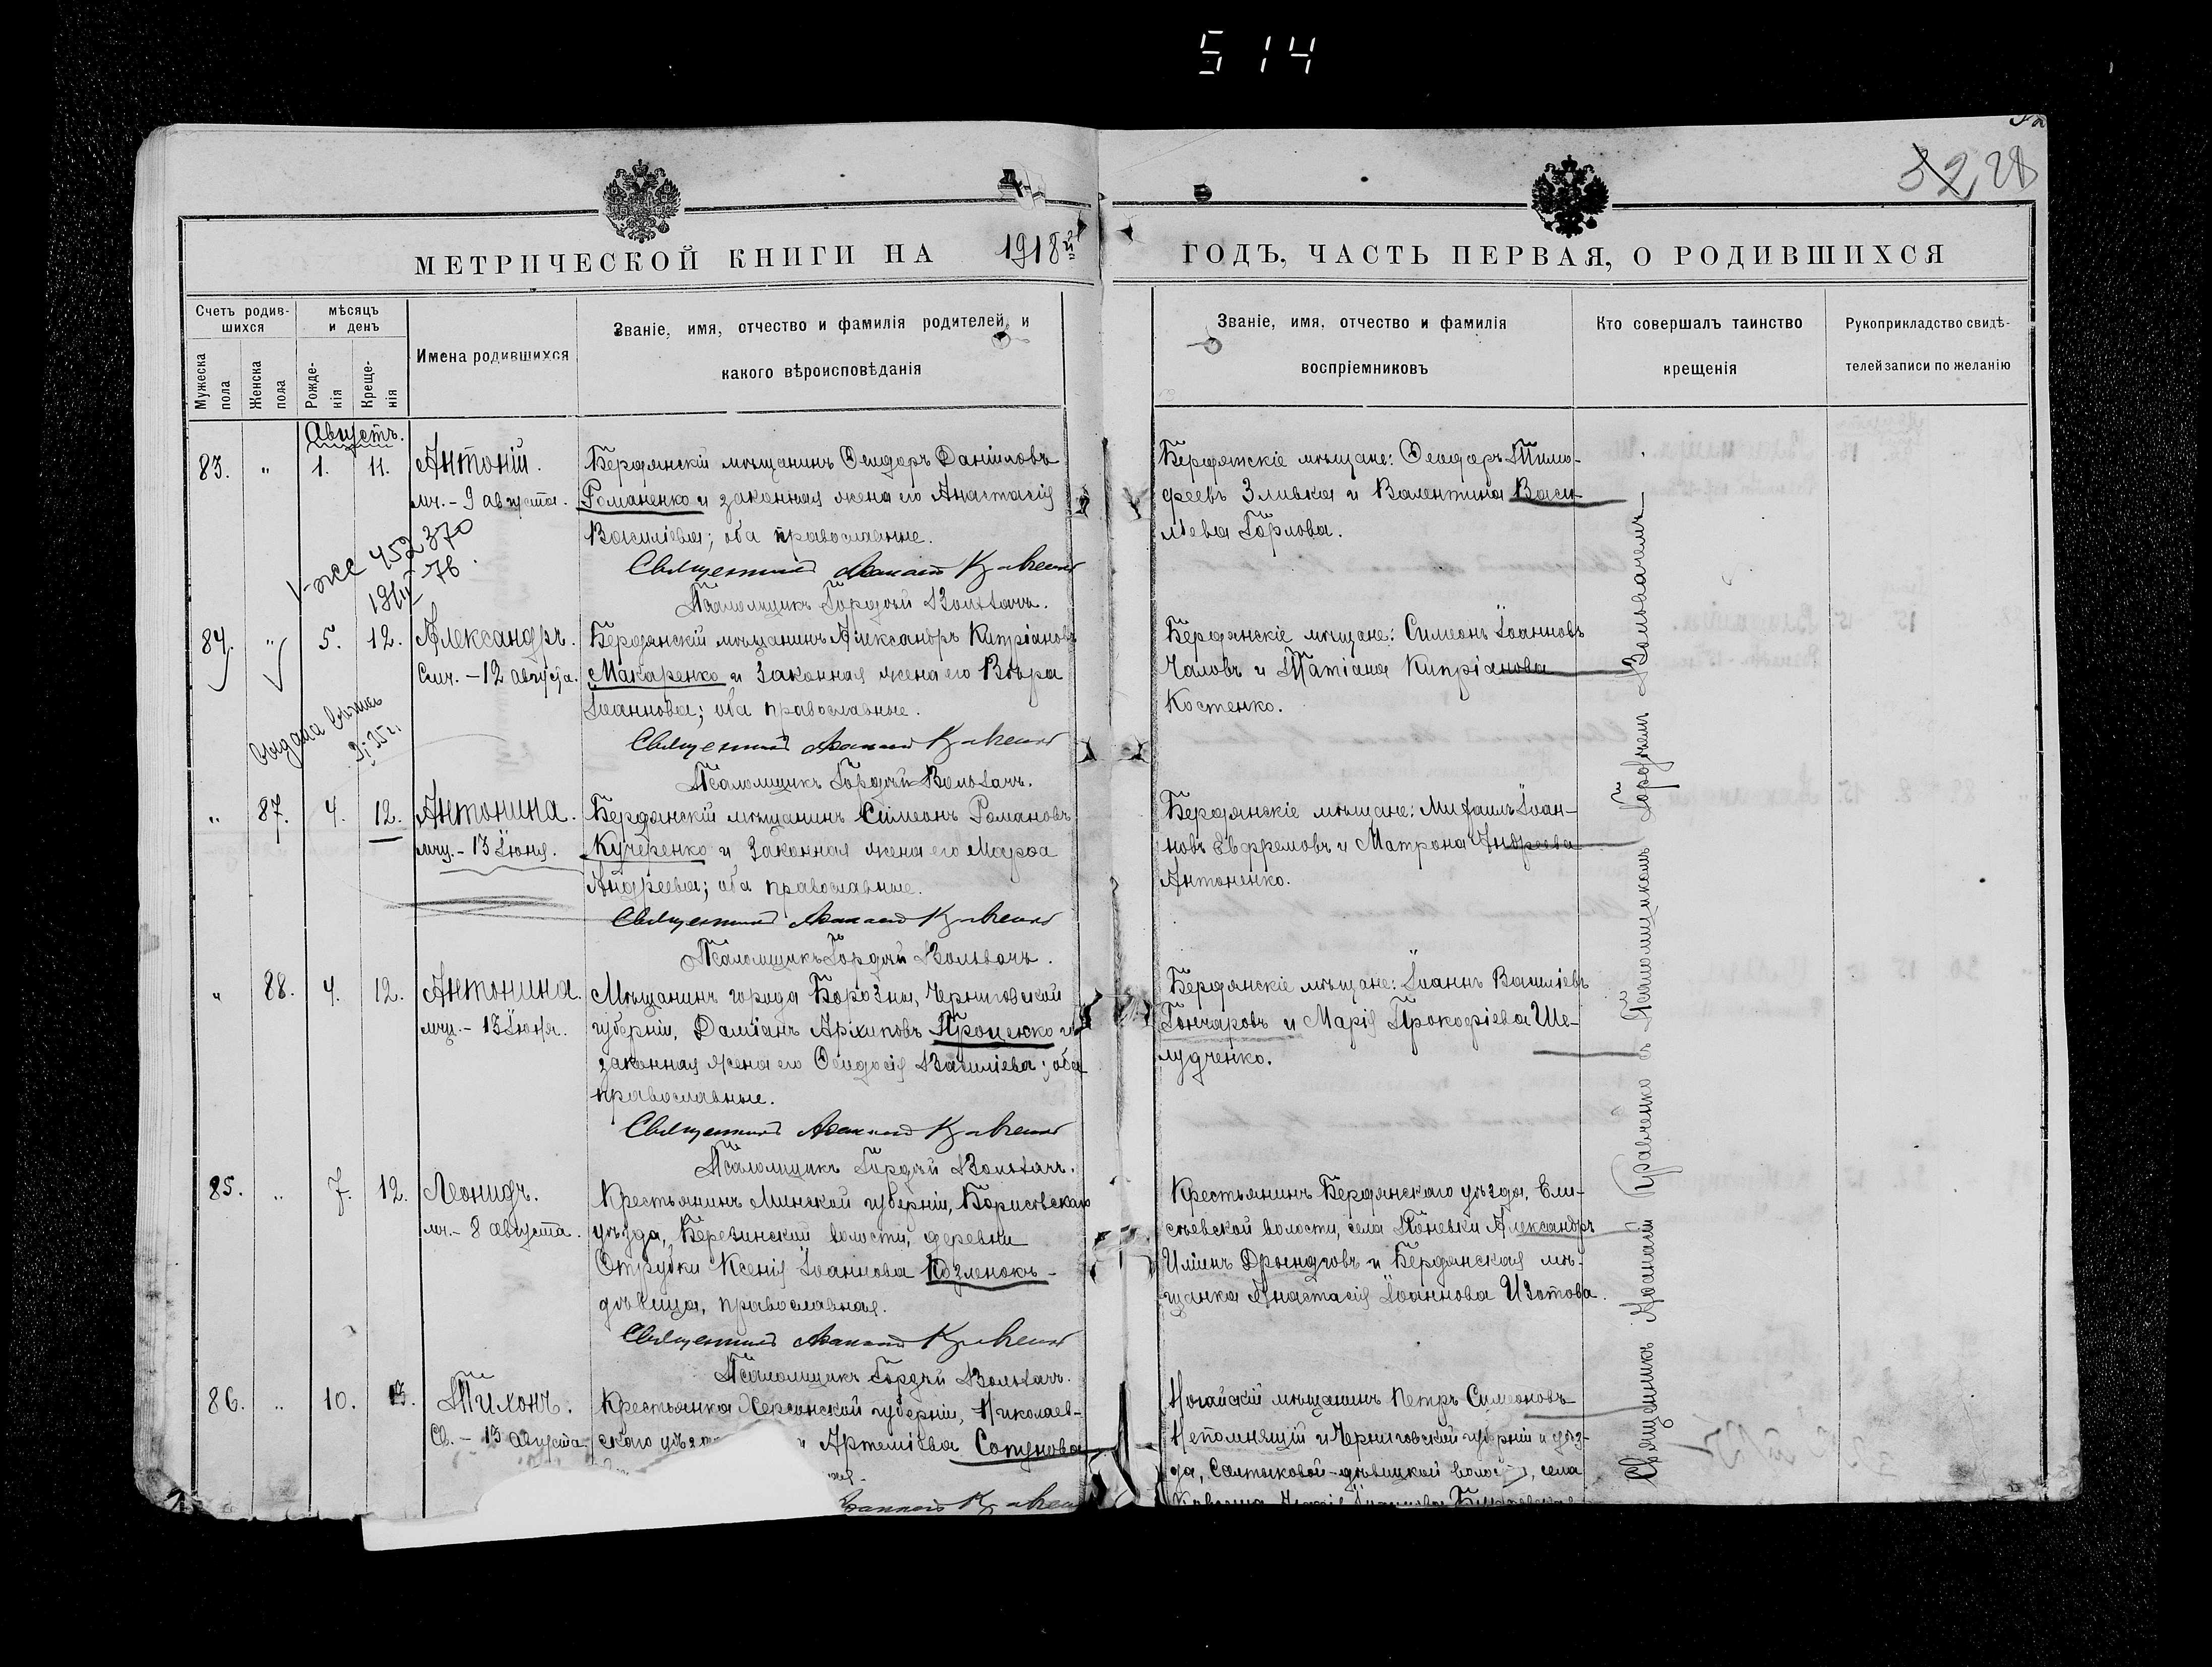 514
32 28
МЕТРИЧЕСКОЙ КНИГИ НА 1918й ГОДЪ, ЧАСТЬ ПЕРВАЯ, О РОДИВШИХСЯ
Счетъ родив-
шихся
Мужеска
пола
Женска
пола
мѣсяцъ
и день
Рожде-
нія
Креще-
нія
Имена родившихся
Званіе, имя, отчество и фамилія родителей, и
какого вѣроисповѣданія
Званіе, имя, отчество и фамилія
воспріемниковъ
Кто совершалъ таинство
крещенія
Рукоприкладство свидѣ-
телей записи по желанію
Августъ.
83. " 1. 11. Антоній.
мч. - 9 августа.
Бердянскій мѣщанинъ Ѳеодоръ Даніиловъ
Романенко и законная жена его Анастасія
Василіева; оба православные.
Священникъ Кравченко
Псаломщикъ Гордѣй Вольвачъ.
Бердянскіе мѣщане: Ѳеодоръ Тимо-
феевъ Зливка и Валентина Васи-
льева Горлова.
452370
76
84. " 5. 12. Александръ.
Смч. - 12 августа.
Бердянскій мѣщанинъ Александръ Кипріановъ
Макаренко и законная жена его Вѣра
Іоаннова; оба православные.
Священникъ Кравченко
Псаломщикъ Гордѣй Вольвачъ.
Бердянскіе мѣщане: Симеонъ Іоанновъ
Чаловъ и Татіана Кипріанова
Костенко.
Выдана
" 87. 4. 12. Антонина.
мчц. - 13 Іюня.
Бердянскій мѣщанинъ Симеонъ Романовъ
Кучеренко и законная жена его Марѳа
Андреева; оба православные.
Священникъ Кравченко
Псаломщикъ Гордѣй Вольвачъ.
Бердянскіе мѣщане: Михаилъ Іоан-
новъ Евфремовъ и Матрона Андреева
Антоненко.
" 88. 4. 12. Антонина.
мчц. - 13 Іюня.
Мѣщанинъ города Борзны, Черниговской
губерніи, Даміанъ Архиповъ Проценко и
законная жена его Ѳеодосія Василіева; оба
православные.
Священникъ Кравченко
Псаломщикъ Гордѣй Вольвачъ.
Бердянскіе мѣщане: Іоаннъ Василіевъ
Гончаровъ и Марія Прокофіева Ше-
лудченко.
85. " 7. 12. Леонидъ.
мч. - 8 августа.
Крестьянинъ Минской губерніи, Борисовскаго
уѣзда, Березинской волости, деревни
Отрубки Ксенія Іоаннова Козленокъ -
дѣвица, православная.
Священникъ Кравченко
Псаломщикъ Гордѣй Вольвачъ.
Крестьянинъ Бердянскаго уѣзда, Ели-
сѣевской волости, села Александръ
Иліинъ и Бердянская мѣ-
щанка Анастасія Іоаннова Изотова.
86. " 10. 13. Тихонъ.
Св. - 13 августа.
Крестьянка Херсонской губерніи, Николаев-
скаго Артеміева
Кравченко
Ногайскій мѣщанинъ Петръ Симеоновъ
Непомнящій и Черниговской губерніи и уѣз-
да, Салтыковой-дѣвицкой волости, села
Священникъ Кравченко съ Псаломщикомъ Гордѣемъ Вольвачемъ